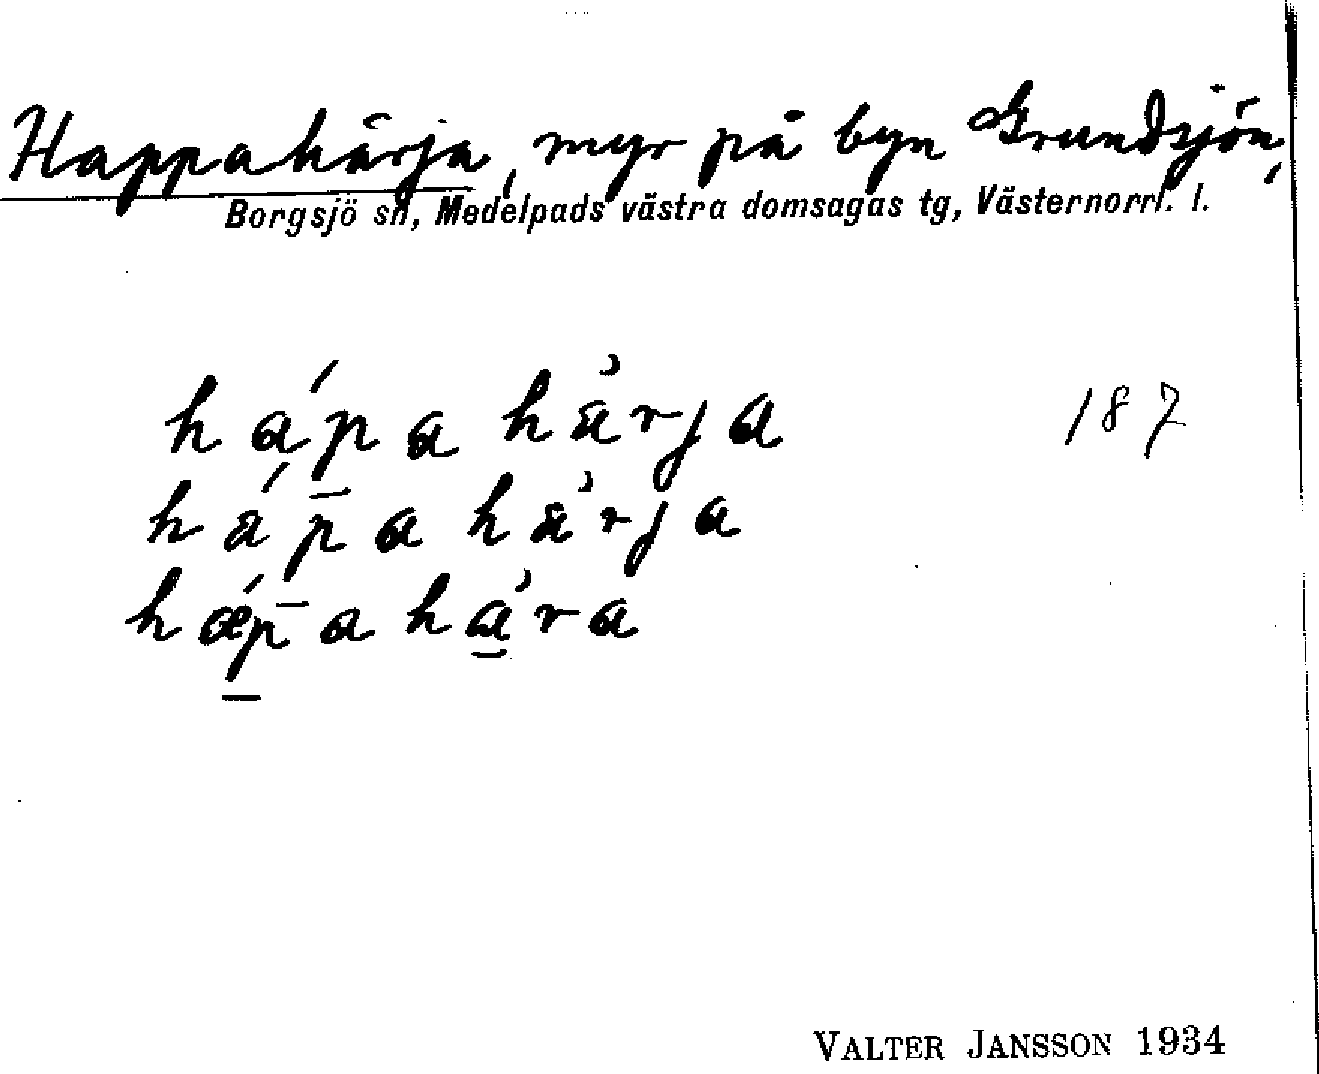 Happahärja, myr på byn Grundsjön,
Borgsjö sn, Medelpads västra domsagas tg, Västernorrl. l.
hápa härja 187
háp̄a härja
hǽp̄a hara
VALTER JANSSON 1934